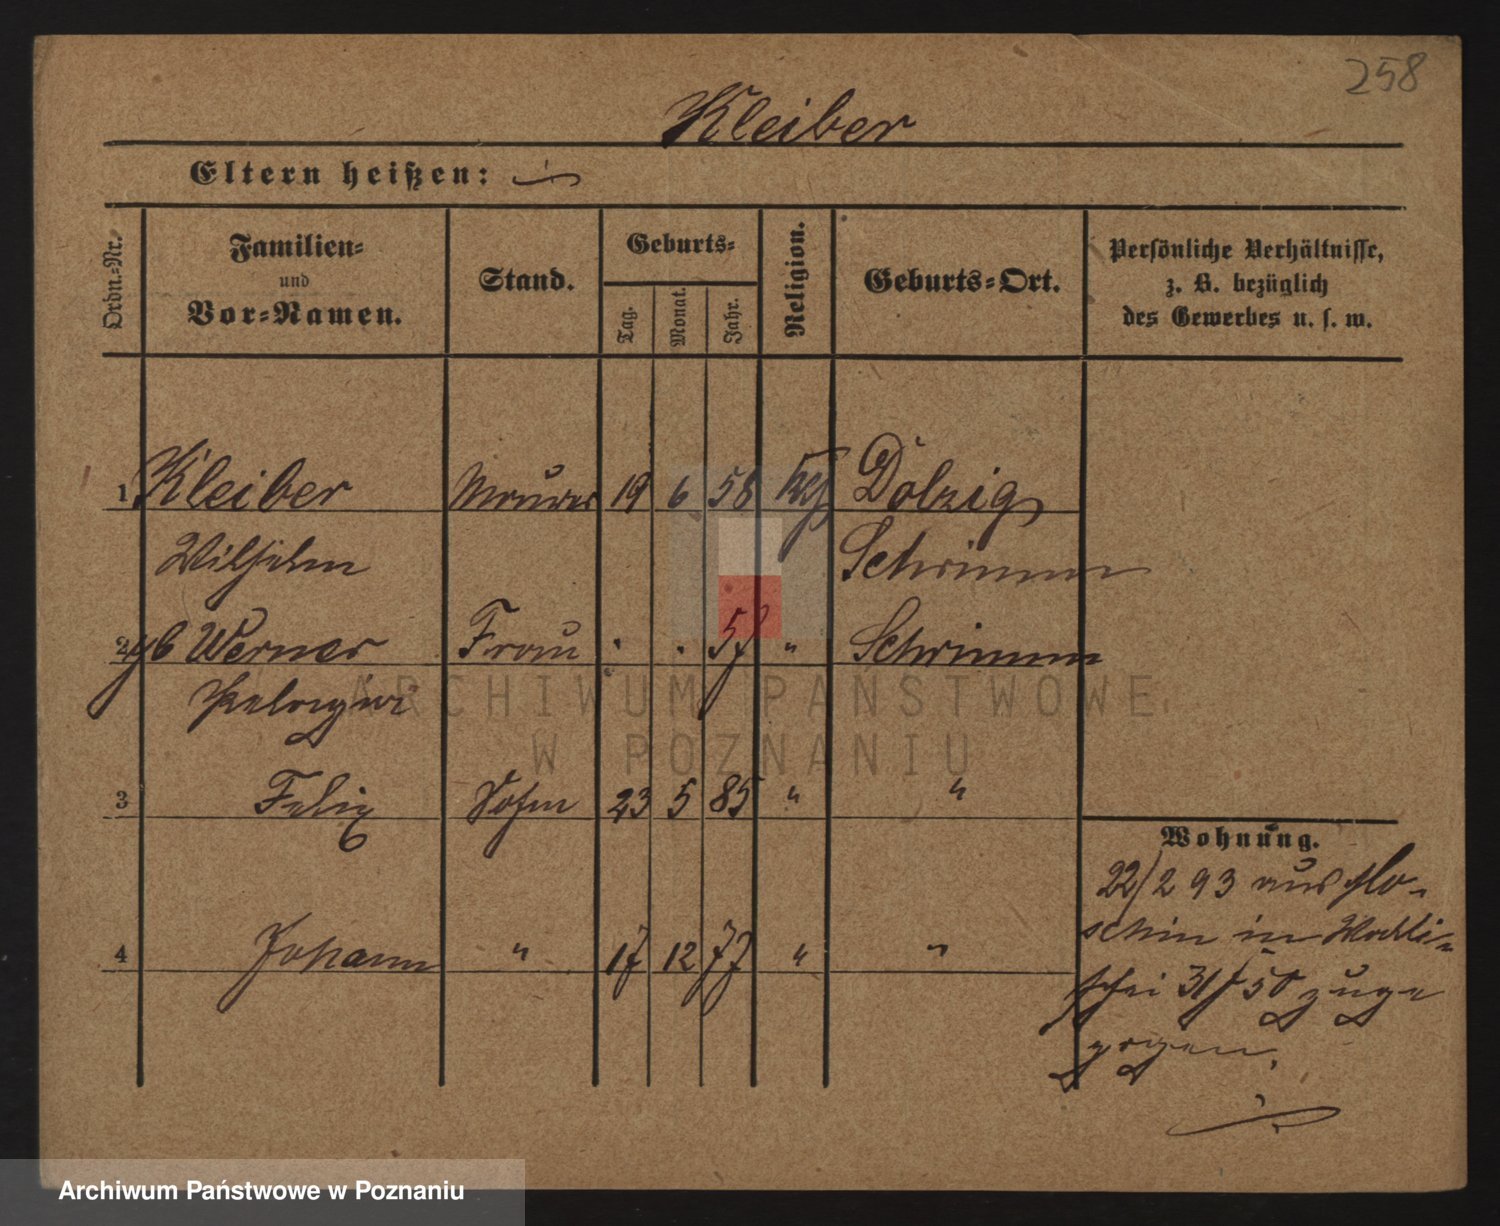 258
Kleiber
Eltern heißen:
Ordn.=Nr.
Familien=
und
Vor=Namen.
Stand.
Geburts=
Tag.
Monat.
Jahr.
Religion.
Geburts=Ort.
Persönliche Verhältnisse,
z. B. bezüglich
des Gewerbes u. s. w.
1 Kleiber Maurer 19 6 58 Dolzig
Wilhelm Schrimm
2 gb Werner Frau " " 57 " Schrimm
Pelagia
ARCHIWUM PAŃSTWOWE
W POZNANIU
3 Felix Sohn 23 5 85 " "
Wohnung.
22/2 93 aus
schin in Walli=
4 Johann " 17 12 77 " "
schei 31/50 zuge
zogen.
Archiwum Państwowe w Poznaniu